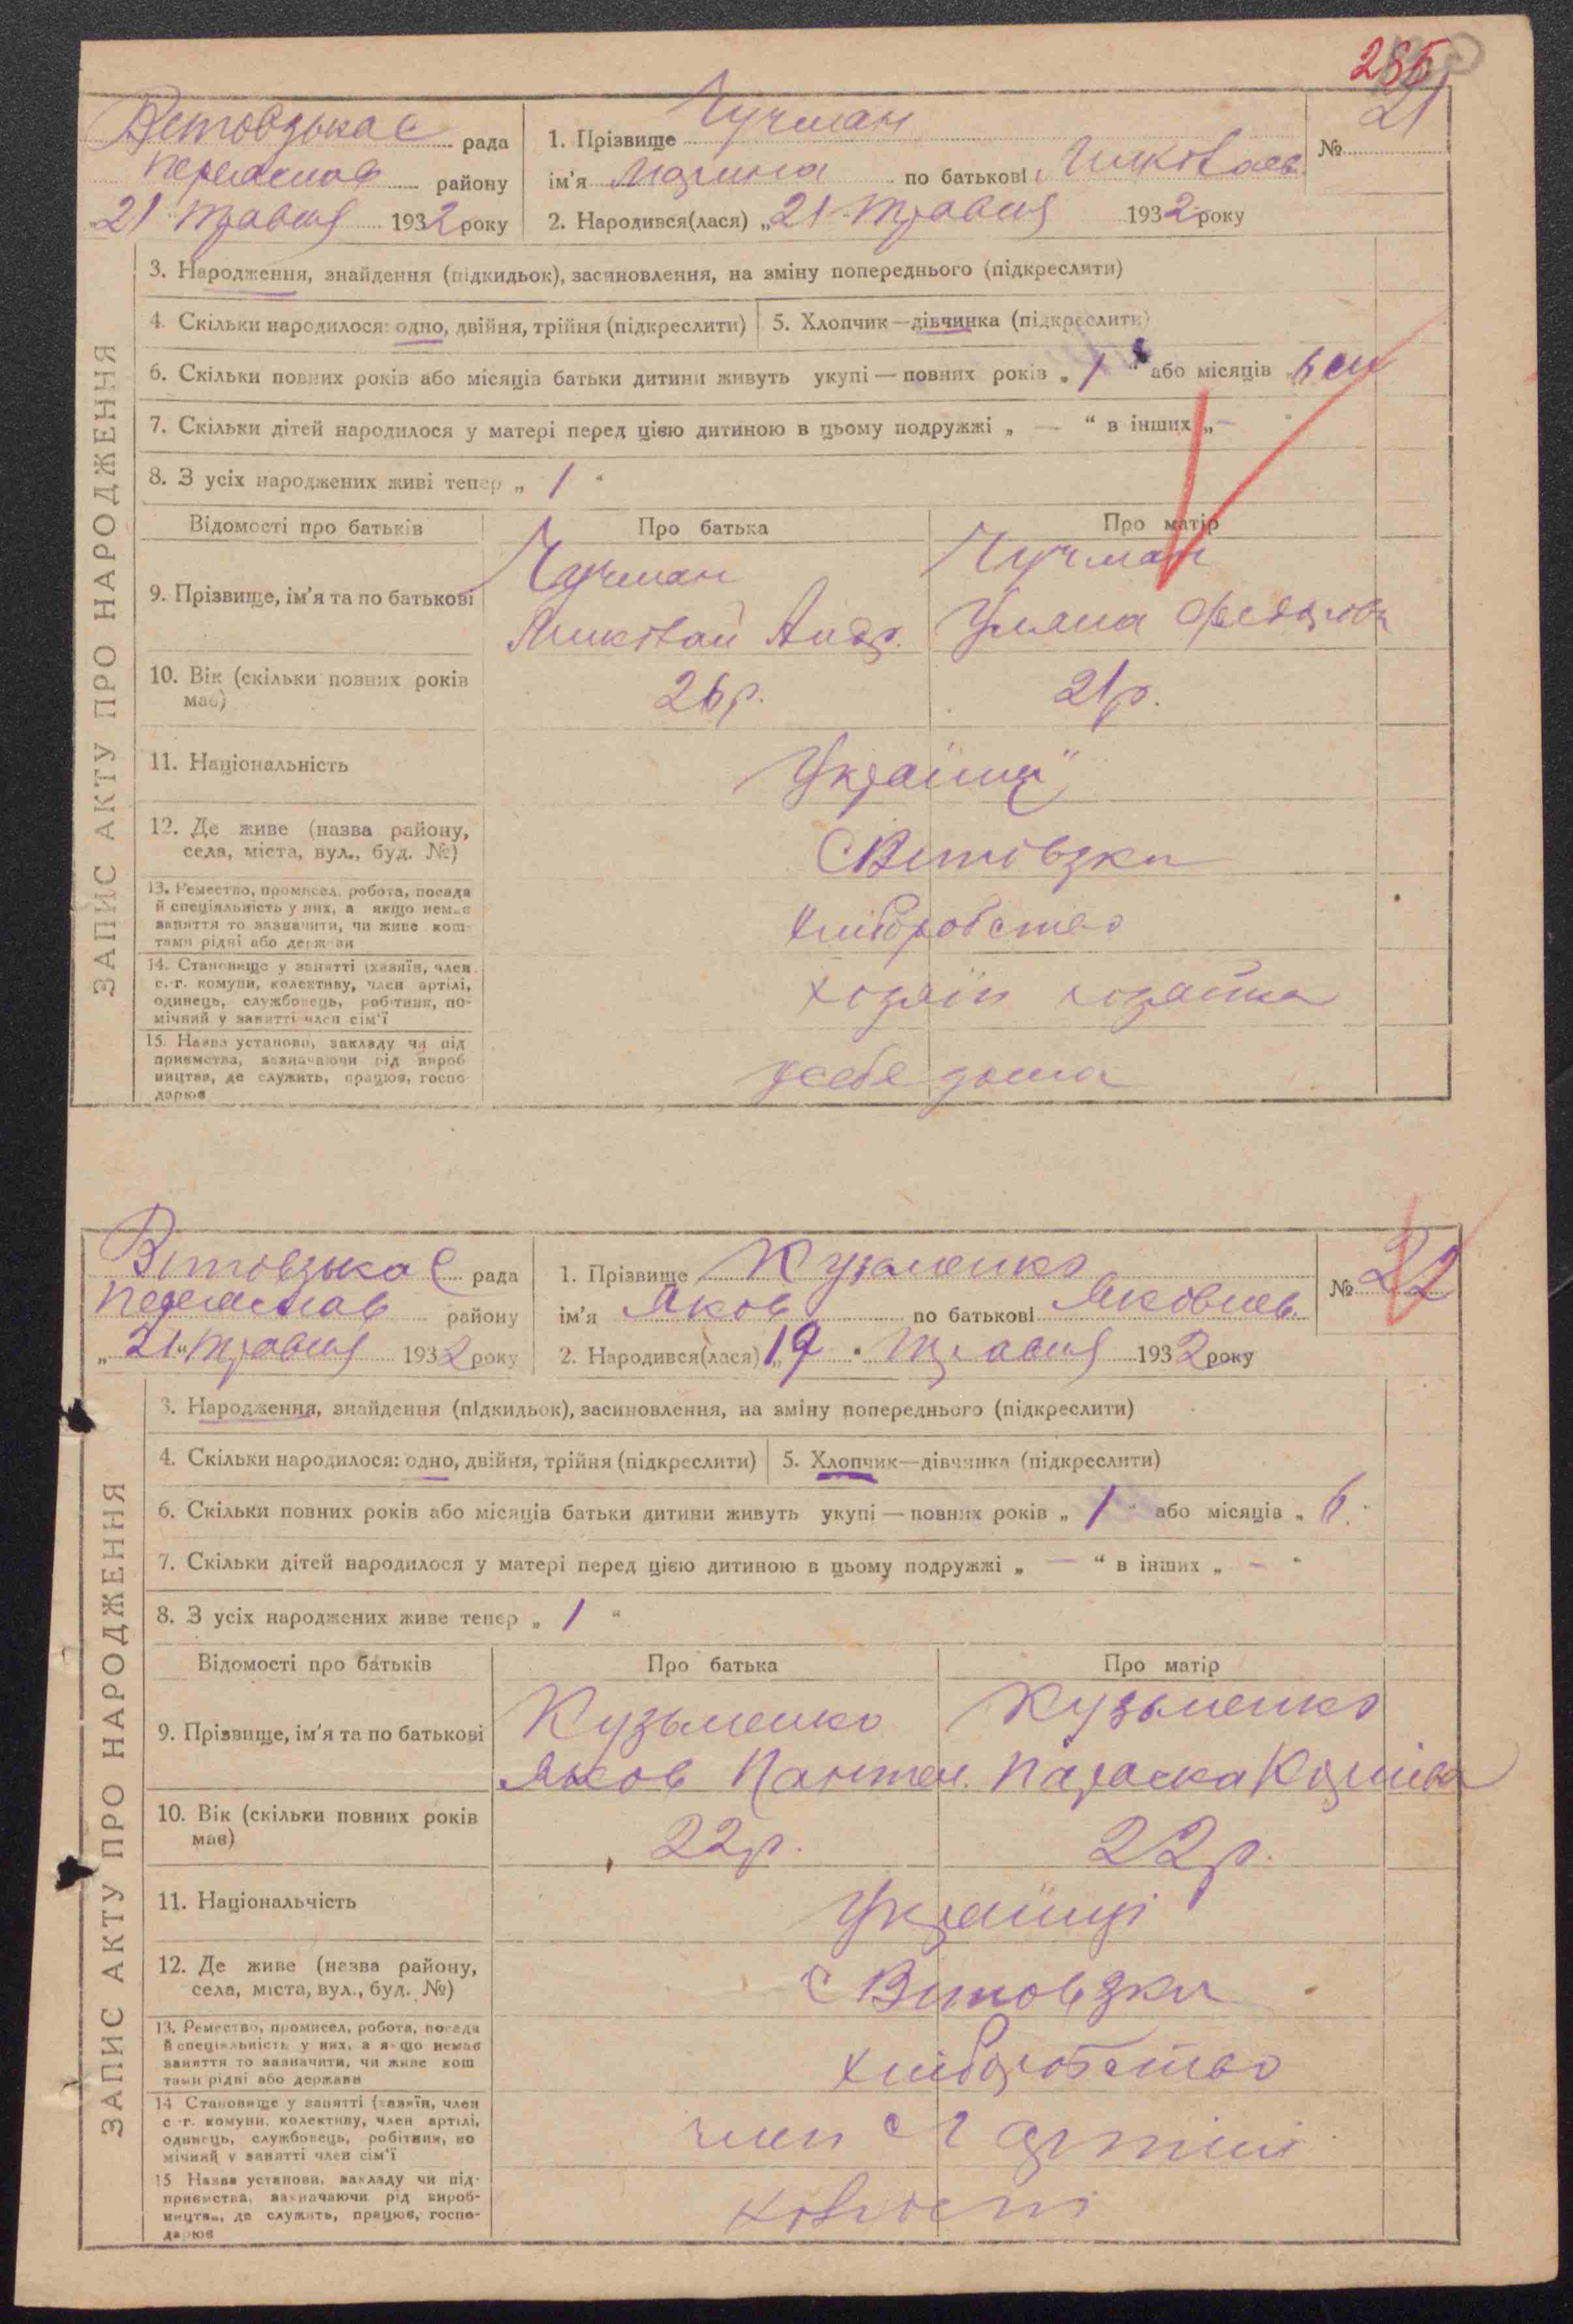 285
Вітовзька с рада
Переяслав району
21 травня 1932 року
1. Прізвище Чучман
ім'я Марина по батькові Миколаєв.
2. Народився(лася) „21 травня 1932 року
№ 21
ЗАПИС АКТУ ПРО НАРОДЖЕННЯ
3. Народження, знайдення (підкидьок), засиновлення, на зміну попереднього (підкреслити)
4. Скільки народилося: одно, двійня, трійня (підкреслити) 5. Хлопчик—дівчинка (підкреслити)
6. Скільки повних років або місяців батьки дитини живуть укупі — повних років „ 1 “ або місяців „ 6 м
7. Скільки дітей народилося у матері перед цією дитиною в цьому подружжі „ — “ в інших „ — “
8. З усіх народжених живі тепер „ 1 “
Відомості про батьків Про батька Про матір
9. Прізвище, ім'я та по батькові
Чучман Чучман
Миколай Андр. Уляна Федорова
10. Вік (скільки повних років має) 26 р. 21 р.
11. Національність Українці
12. Де живе (назва району,
села, міста, вул., буд. №) С Вітовзки
13. Ремество, промисел, робота, посада
й спеціяльність у них, а якщо немає
заняття то зазначити, чи живе кош-
тами рідні або держави
Хліборобство
14. Становище у занятті (хазяїн, член
с.-г. комуни, колективу, член артілі,
одинець, службовець, робітник, по-
мічний у занятті член сім'ї
хозяїн хозяйка
15. Назва установи, закладу чи під
приємства, зазначаючи рід вироб
ництва, де служить, працює, госпо-
дарює
у себе дома
Вітовзька с рада
Переяслав району
„ 21 “ травня 1932 року
1. Прізвище Кузьменко
ім'я Яков по батькові Яковлев.
2. Народився(лася) „19 “ травня 1932 року
№ 22
ЗАПИС АКТУ ПРО НАРОДЖЕННЯ
3. Народження, знайдення (підкидьок), засиновлення, на зміну попереднього (підкреслити)
4. Скільки народилося: одно, двійня, трійня (підкреслити) 5. Хлопчик—дівчинка (підкреслити)
6. Скільки повних років або місяців батьки дитини живуть укупі — повних років „ 1 “ або місяців „ 6. “
7. Скільки дітей народилося у матері перед цією дитиною в цьому подружжі „ — “ в інших „ — “
8. З усіх народжених живе тепер „ 1 “
Відомості про батьків Про батька Про матір
9. Прізвище, ім'я та по батькові
Кузьменко Кузьменко
Яков Пантел. Параска
10. Вік (скільки повних років
має) 22 р. 22 р.
11. Національчість Українці
12. Де живе (назва району,
села, міста, вул., буд. №) с Витовзки
13. Ремество, промисел, робота, посада
й спеціяльність у них, а якщо немає
заняття то зазначити, чи живе кош
тами рідні або держави
хліборобство
14 Становище у занятті (хазяїн, член
с.-г. комуни, колективу, член артілі,
одинець, службовець, робітник, по
мічний у занятті член сім'ї
член с г артілі
15 Назва установи, закладу чи під-
приємства, зазначаючи рід вироб-
ництва, де служить, працює, госпо-
дарює
колгоспі